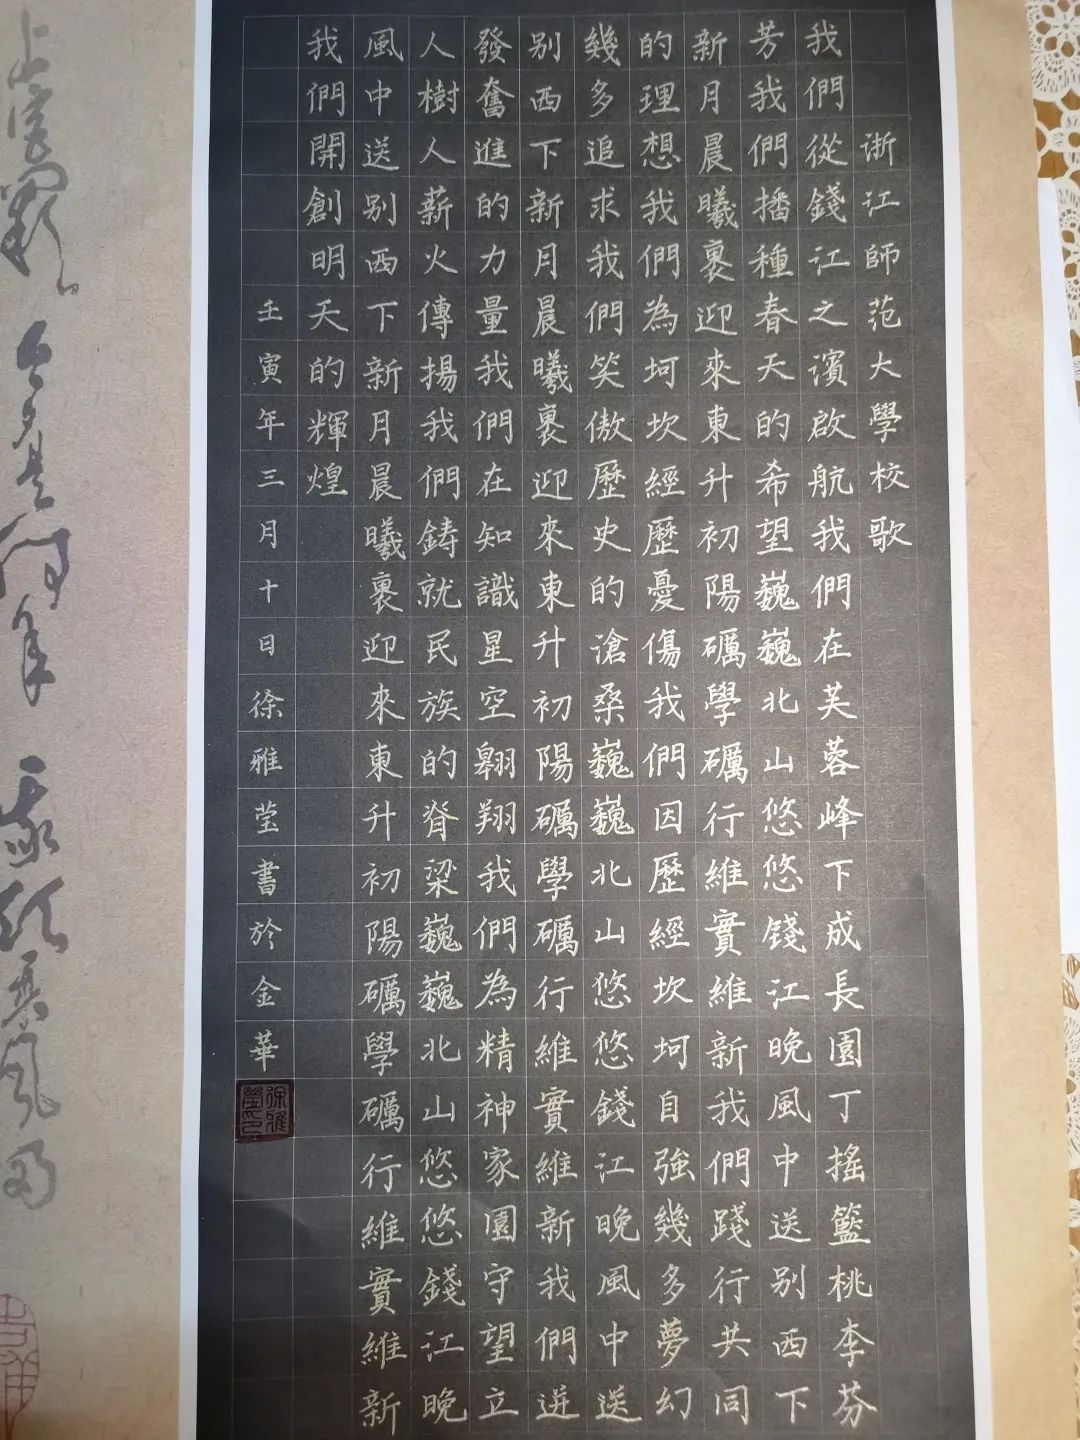 浙江師范大學校歌
我們從錢江之濱啟航我們在芙蓉峰下成長園丁搖籃桃李芬
芳我們播種春天的希望巍巍北山悠悠錢江晚風中送別西下
新月晨曦裹迎來東升初陽礪學礪行維實維新我們踐行共同
的理想我們為坷坎經歷憂傷我們因歷經坎坷自強幾多夢幻
幾多追求我們笑傲歷史的滄桑巍巍北山悠悠錢江晚風中送
別西下新月晨曦裹迎來東升初陽礪學礪行維實維新我們迸
發奮進的力量我們在知識星空翱翔我們為精神家園守望立
人樹人薪火傳揚我們鑄就民族的脊梁巍巍北山悠悠錢江晚
風中送別西下新月晨曦裹迎來東升初陽礪學礪行維實維新
我們開創明天的輝煌
壬寅年三月十日徐雅莹書於金華
徐雅瑩印